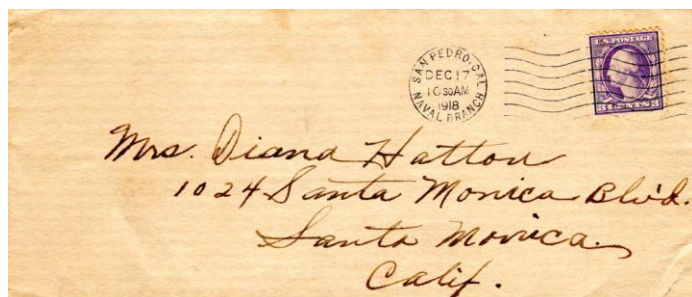 SAN PEDRO, CAL.
DEC 17
10 30 AM
1918
NAVAL BRANCH
U.S. POSTAGE
3 CENTS 3
Mrs. Diana Hatton
1024 Santa Monica Blvd.
Santa Monica
Calif.